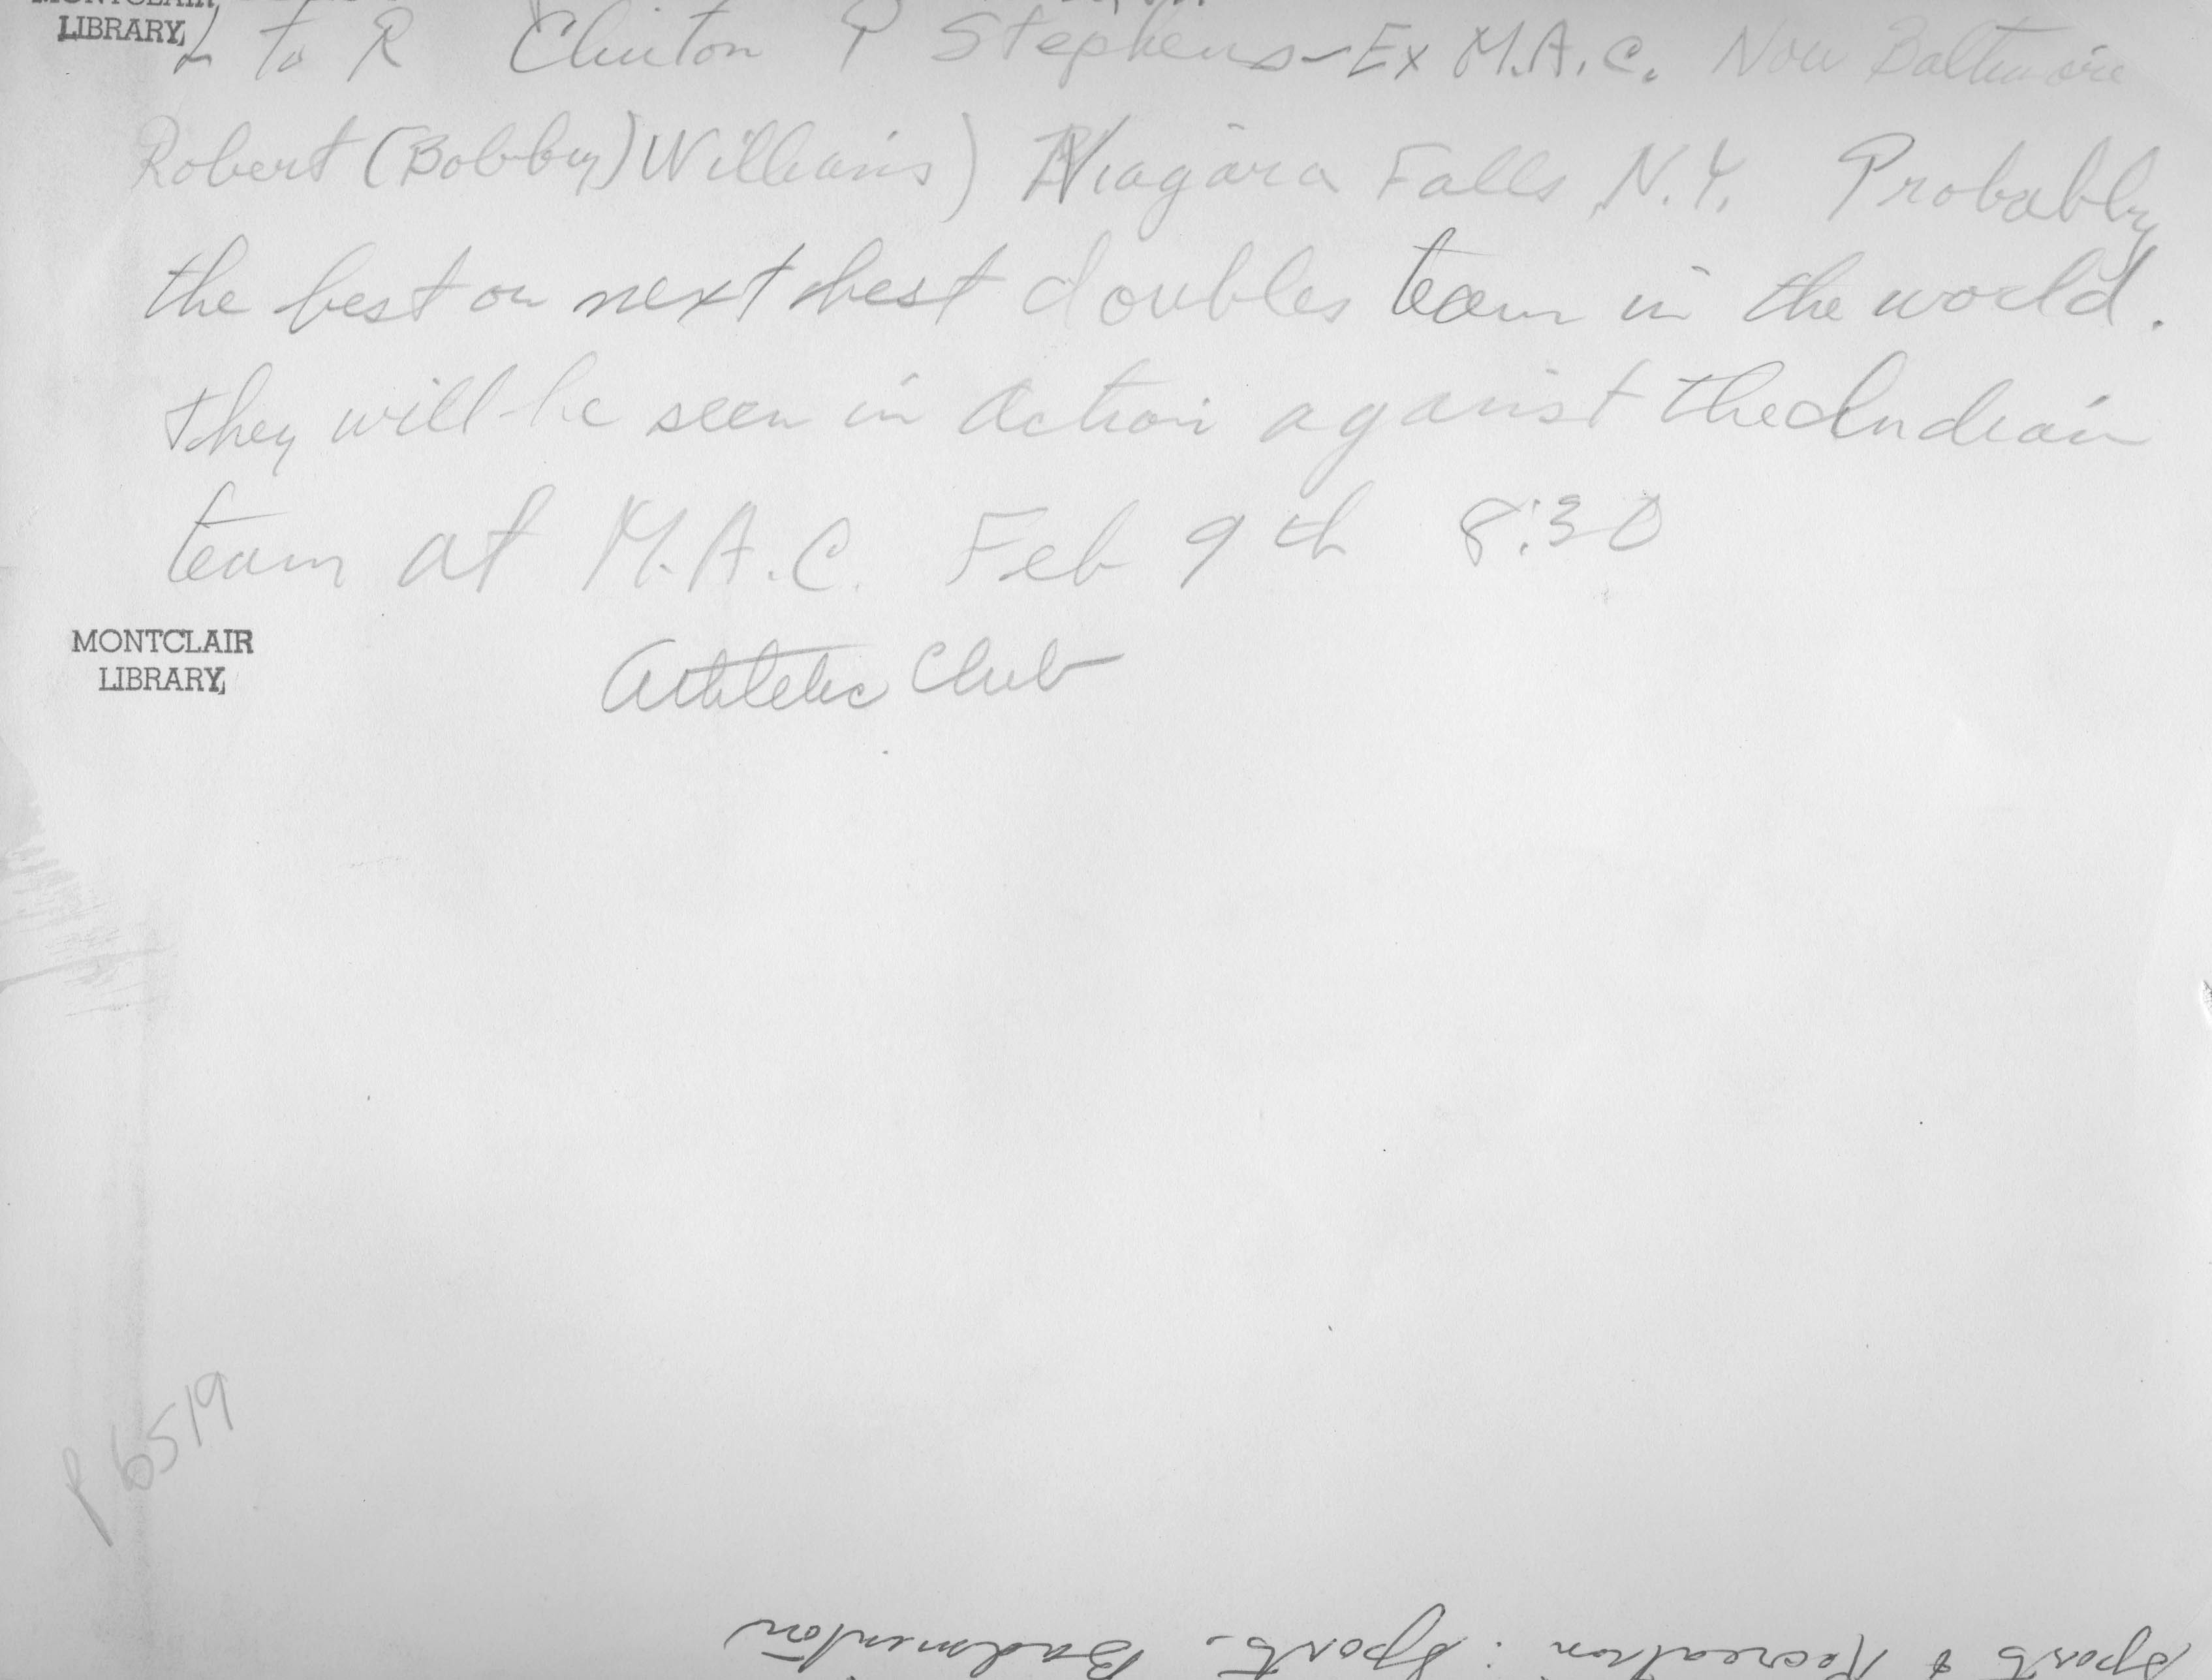 MONTCLAIR
LIBRARY,
L to R Clinton P Stephens - Ex M.A.C. Now Baltimore
Robert (Bobby) Williams) Niagara Falls N.Y. Probably
the best or next best doubles team in the world.
They will be seen in action against the Indian
team at M.A.C. Feb 9th 8:30
Athletic Club
MONTCLAIR
LIBRARY,
P6519
Sports & Recreation: Sports. Badminton